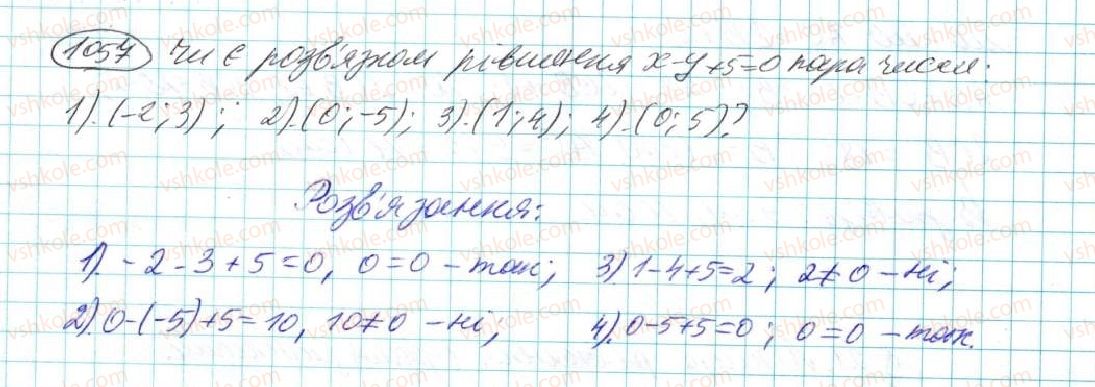 1057 Чи є розв'язком рівняння x-y+5=0 пара чисел:
1).(-2;3); 2).(0;-5); 3).(1;4); 4).(0;5)?
Розв'язання:
1). -2-3+5=0, 0=0 - так; 3). 1-4+5=2; 2≠0 - ні;
2). 0-(-5)+5=10, 10≠0 - ні; 4). 0-5+5=0; 0=0 - так.